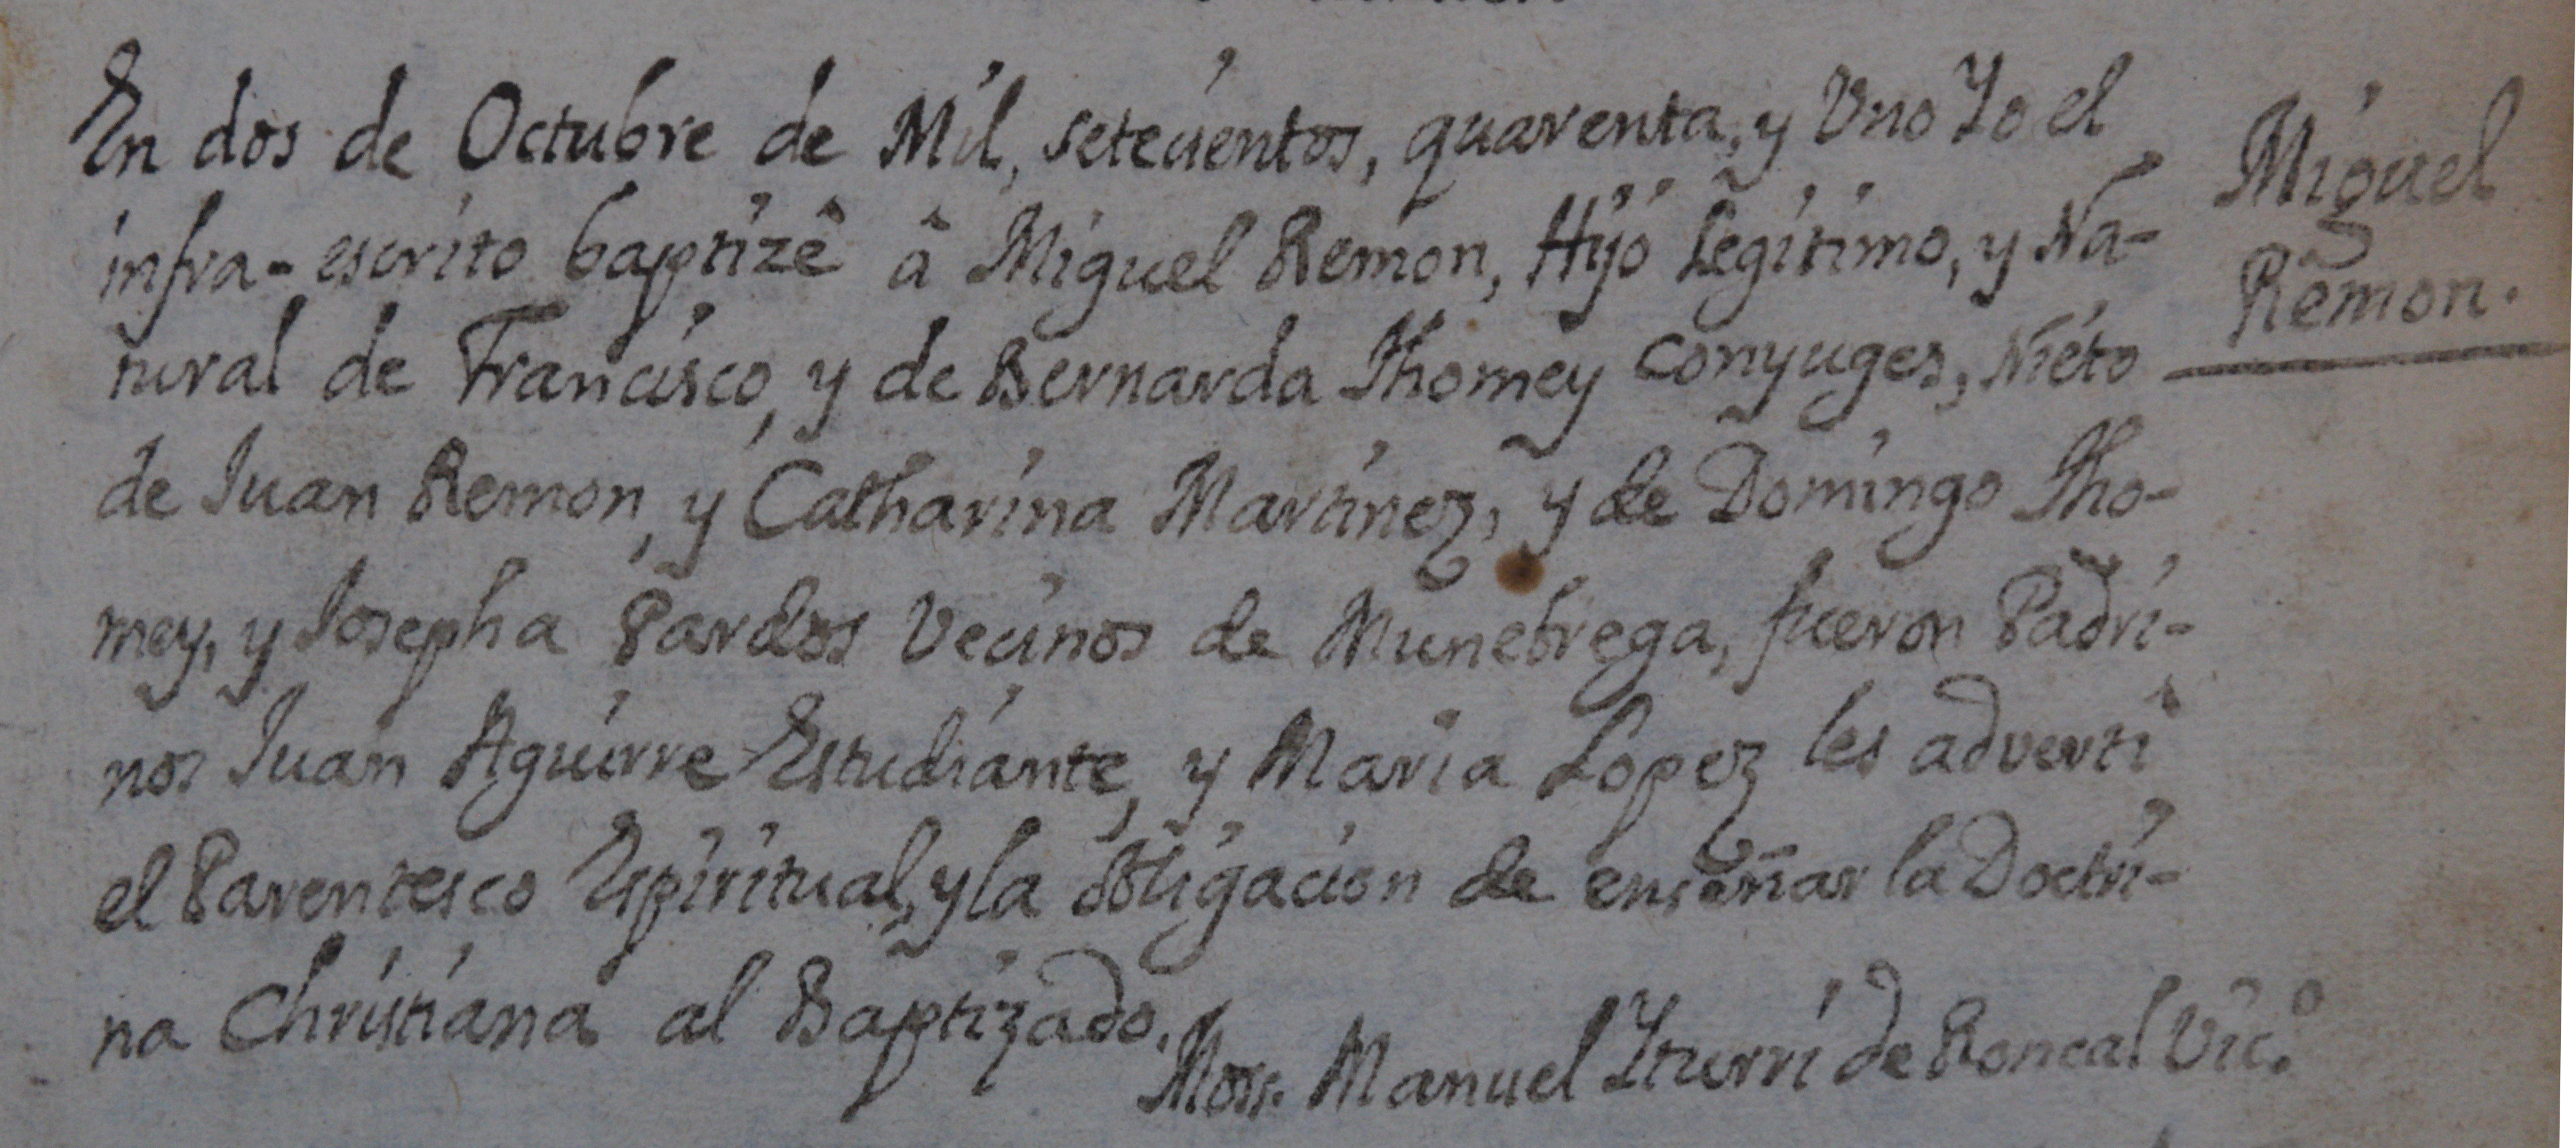 En dos de Octubre de Mil, setecientos, quarenta, y Uno Yo el
infra-escrito baptizê â Miguel Remon, Hijo Legitimo, y Na-
tural de Francisco, y de Bernarda Thomey conyuges, Nieto
de Juan Remon, y Catharina Martinez, y de Domingo Tho-
mey, y Josepha Pardos Vecinos de Munebrega, fueron Padri-
nos Juan Aguirre Estudiante, y Maria Lopez les advertî
el Parentesco Espiritual, y la obligacion de enseñar la Doctri-
na Christiana al Baptizado.
Mosr. Manuel Yturri de Roncal Vic.º
Miguel
Remon.